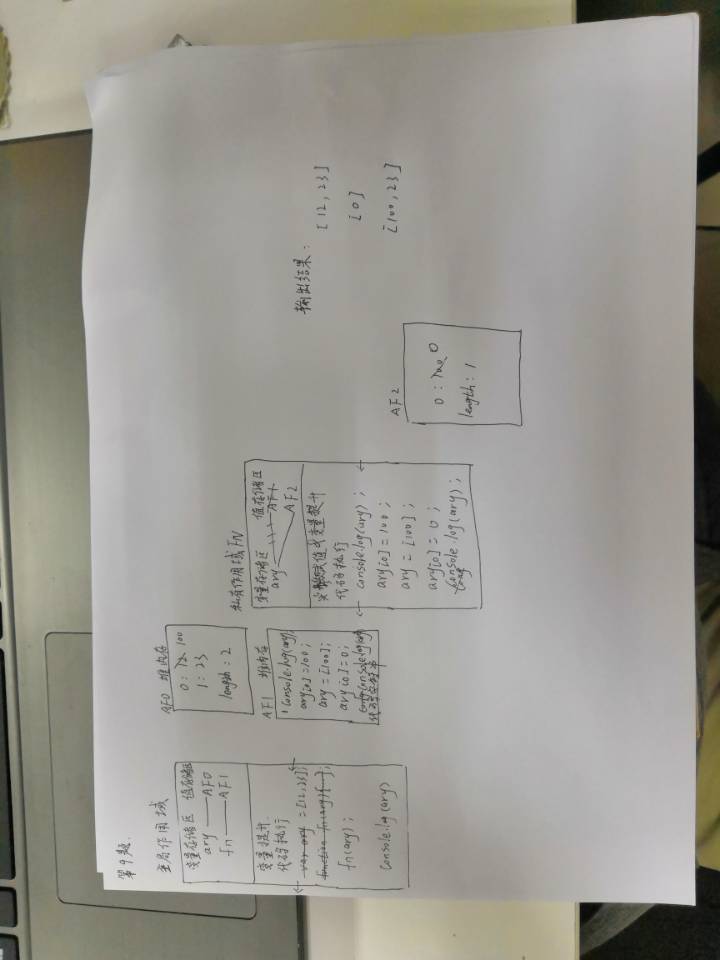 第9题.
全局作用域
变量存储区 值存储区
ary —— AF0
fn —— AF1
变量提升.
代码执行
var ary = [12,23];
function fn(ary){...};
fn(ary);
Console.log(ary)
AF0 堆内存
0 : 12 100
1 : 23
length : 2
AF1 堆内存
"Console.log(ary);
ary[0]=100;
ary = [100];
ary[0]=0;
Console.log(ary)
代码字符串
私有作用域FN
变量存储区 值存储区
ary AF1
AF2
变量提升
代码执行
Console.log(ary);
ary[0] = 100;
ary = [100];
ary[0] = 0;
Console.log(ary);
AF2
0 : 100 0
length : 1
输出结果:
[12,23]
[0]
[100,23]